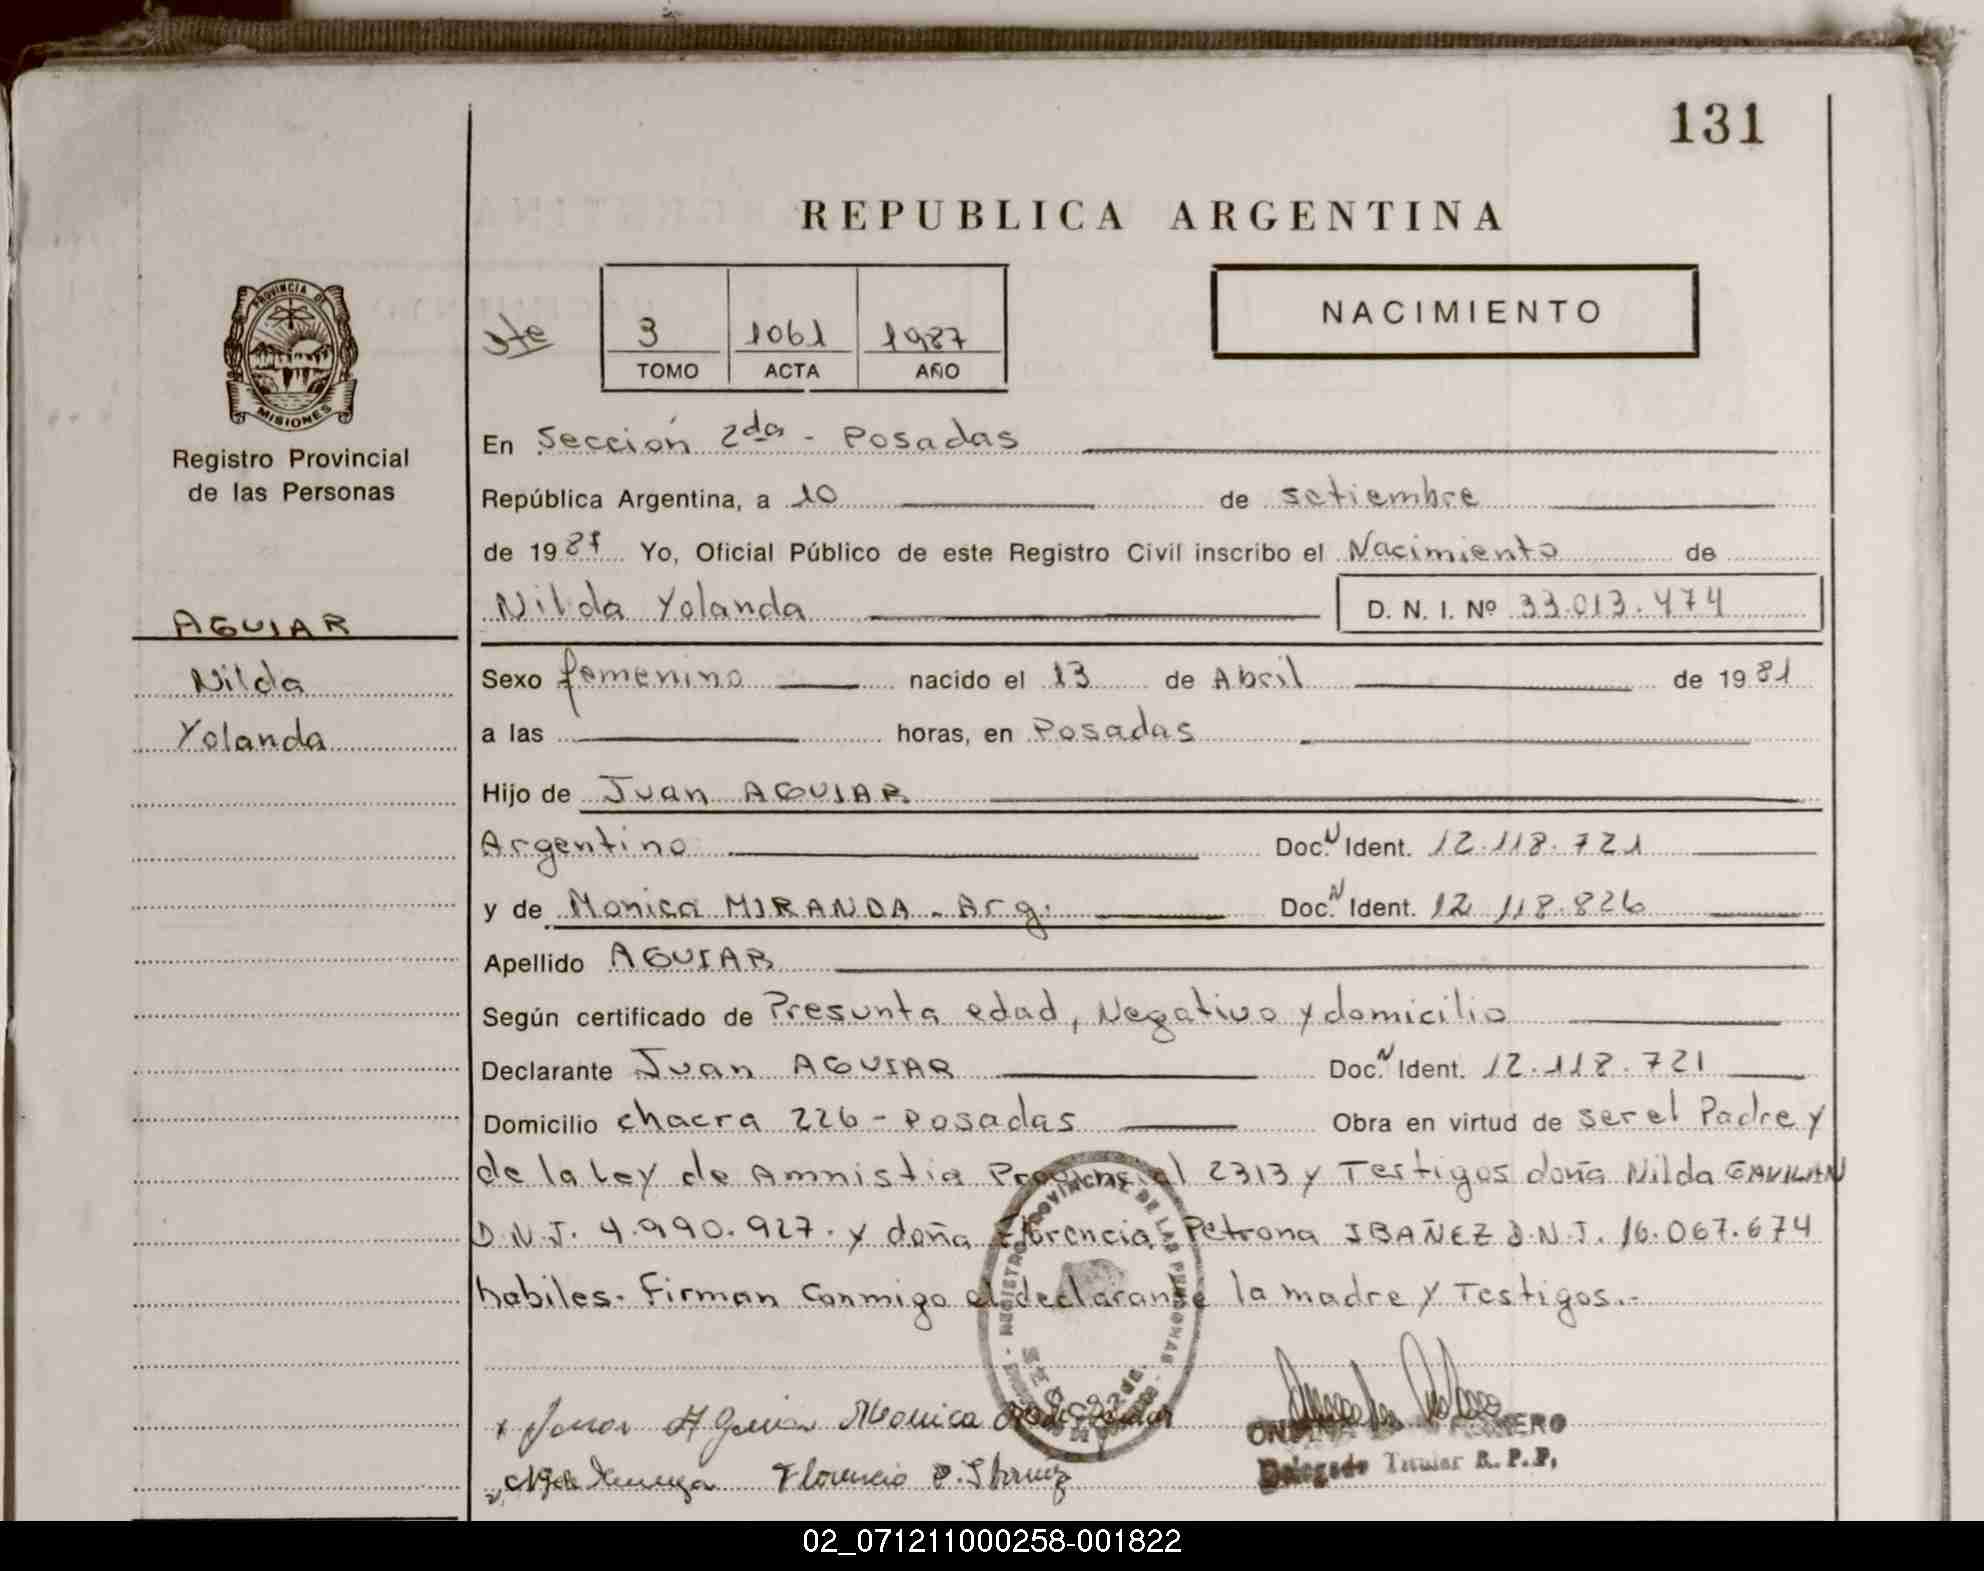 131
REPUBLICA ARGENTINA
PROVINCIA DE
MISIONES
Registro Provincial
de las Personas
3 1061 1987
TOMO ACTA AÑO
NACIMIENTO
En Sección 2da - Posadas
República Argentina, a 10 de setiembre
de 1987 Yo, Oficial Público de este Registro Civil inscribo el Nacimiento de
Nilda Yolanda D. N. I. Nº 33.013.474
AGUIAR
Nilda
Yolanda
Sexo femenino nacido el 13 de Abril de 1981
a las horas, en Posadas
Hijo de Juan AGUIAR
Argentino Doc. N Ident. 12.118.721
y de Monica MIRANDA - Arg. Doc. N Ident. 12 118.826
Apellido AGUIAR
Según certificado de Presunta edad, Negativo y domicilio
Declarante Juan AGUIAR Doc. N Ident. 12.118.721
Domicilio chacra 226 - Posadas Obra en virtud de ser el Padre y
de la Ley de Amnistia Provincial 2313 y Testigos doña Nilda GAVILAN
D.N.I. 4.990.927. y doña Florencia Petrona IBAÑEZ D.N.I. 16.067.674
habiles. Firman Conmigo el declarante la madre y Testigos.-
REGISTRO PROVINCIAL DE LAS PERSONAS
Monica
Florencia P. Ibañez
ROMERO
Delegado Titular R. P. P.
02_071211000258-001822